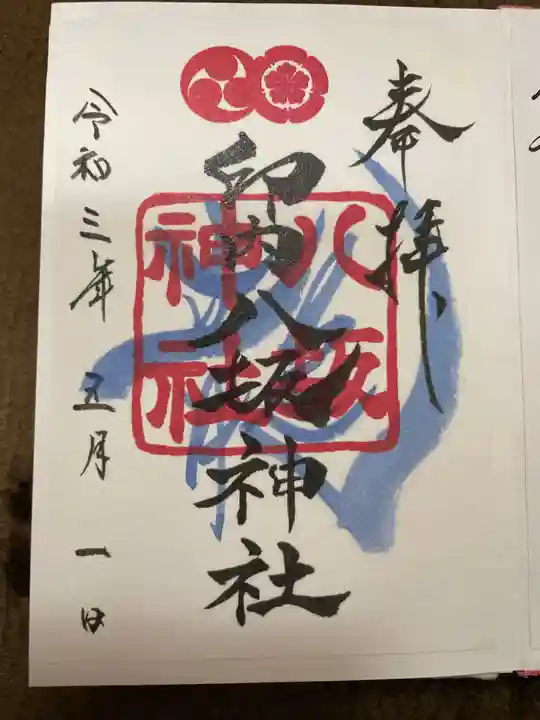 奉拝
印内八坂神社
八坂
神社
令和三年 五月 一日